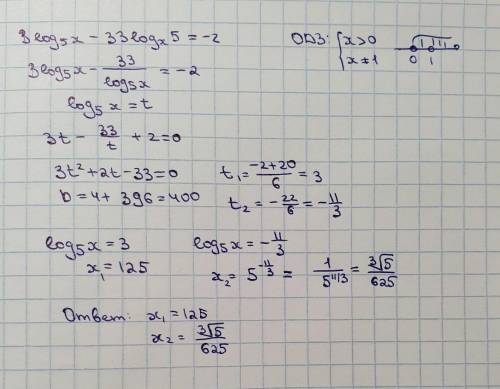 3log₅x - 33logₓ5 = -2
ОДЗ: { x>0
x≠1
0 1
3log₅x - 33/log₅x = -2
log₅x = t
3t - 33/t + 2 = 0
3t² + 2t - 33 = 0
t₁ = (-2+20)/6 = 3
D = 4 + 396 = 400
t₂ = -22/6 = -11/3
log₅x = 3
log₅x = -11/3
x₁ = 125
x₂ = 5^(-11/3) = 1/5^(11/3) = ∛5/625
Ответ: x₁ = 125
x₂ = ∛5/625